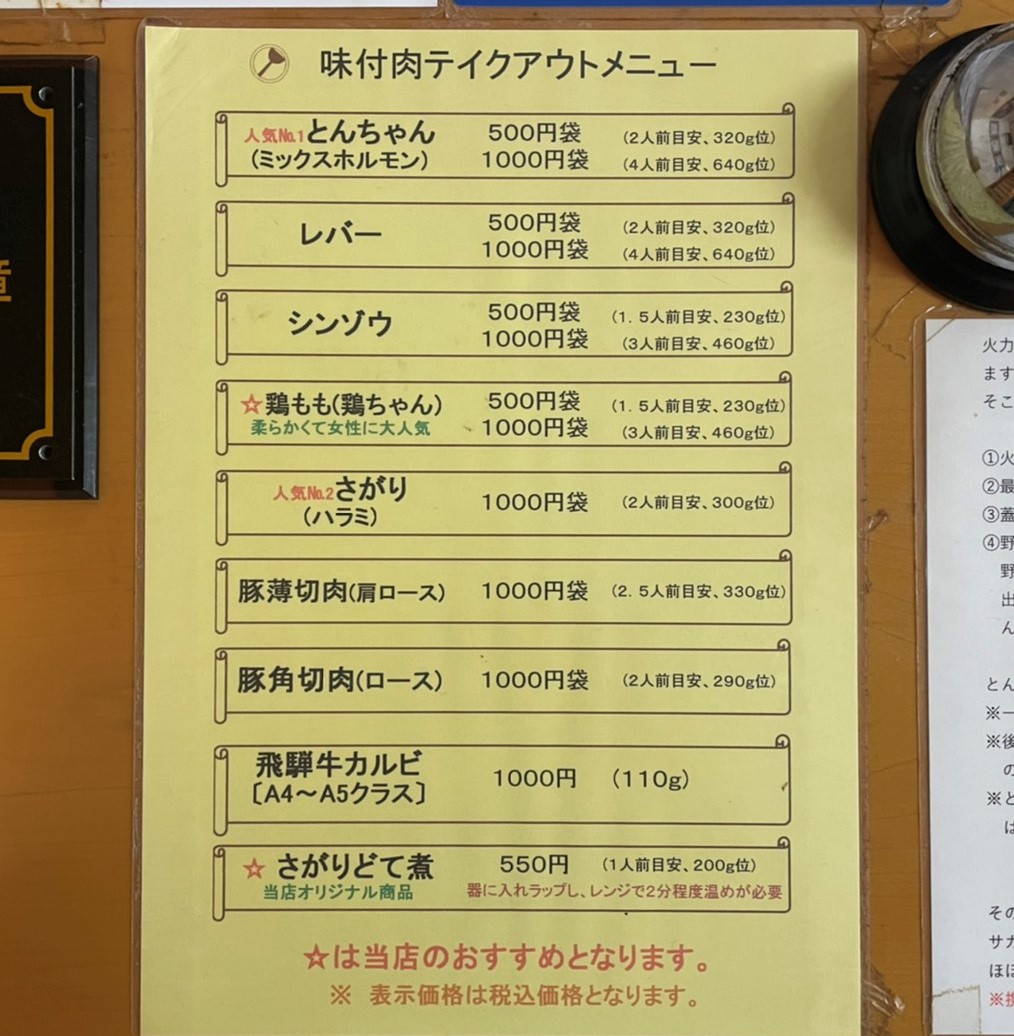 味付肉テイクアウトメニュー
人気№1とんちゃん 500円袋 (2人前目安、320g位)
(ミックスホルモン) 1000円袋 (4人前目安、640g位)
レバー 500円袋 (2人前目安、320g位)
1000円袋 (4人前目安、640g位)
シンゾウ 500円袋 (1.5人前目安、230g位)
1000円袋 (3人前目安、460g位)
☆鶏もも(鶏ちゃん) 500円袋 (1.5人前目安、230g位)
柔らかくて女性に大人気 1000円袋 (3人前目安、460g位)
人気№2さがり 1000円袋 (2人前目安、300g位)
(ハラミ)
豚薄切肉(肩ロース) 1000円袋 (2.5人前目安、330g位)
豚角切肉(ロース) 1000円袋 (2人前目安、290g位)
飛騨牛カルビ 1000円 (110g)
〔A4〜A5クラス〕
☆ さがりどて煮 550円 (1人前目安、200g位)
当店オリジナル商品 器に入れラップし、レンジで2分程度温めが必要
☆は当店のおすすめとなります。
※ 表示価格は税込価格となります。
火力
ます
そこ
①火
②最
③蓋
④野
野
出
ん
とん
※一
※後
の
※と
は
その
サカ
ほほ